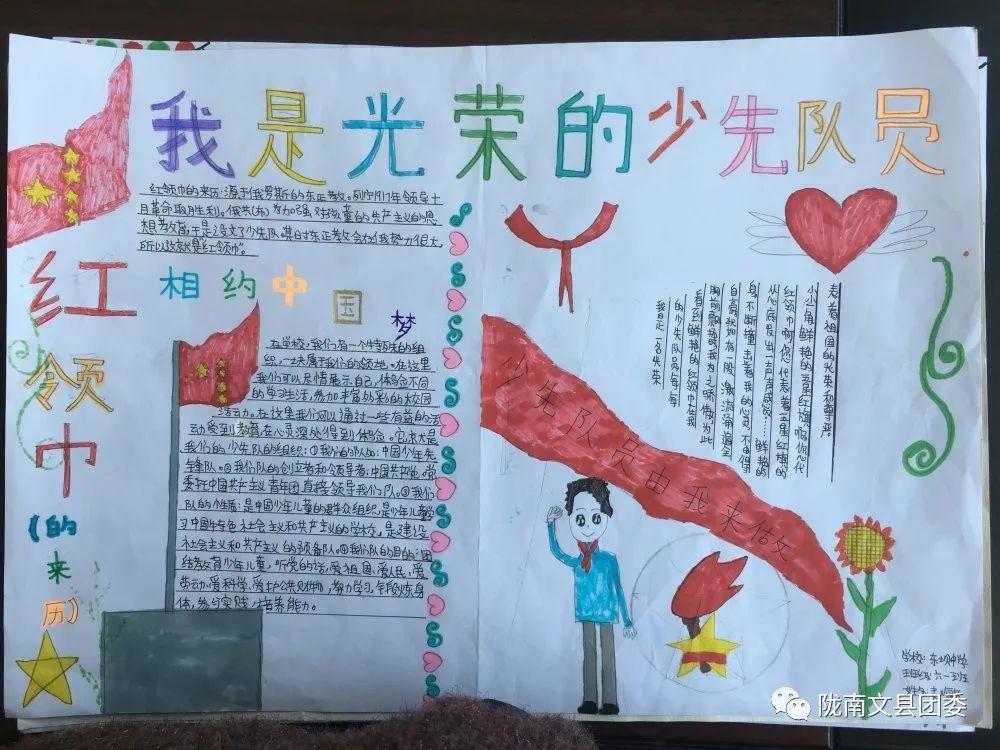 我是光荣的少先队员
红领巾的来历:源于俄罗斯的东正教。列宁1917年领导十
月革命取胜利。俄共(布)为加强对孩童的共产主义的思
想教育,于是设立了少先队。其时东正教会在俄势力很大,
所以这就是红领巾"。
红领巾(的来历)
相约中国梦
在学校,我们有一个牛领朱的组
织,一块属于我们的领地。在这里
我们可以尽情展示自己,体会不同
的学习生活,参加丰富多彩的校园
活动。在这里我们可以通过一些有益的活
动受到教育,在心灵深处得到体验。它就是
我们的少先队的组织:①我们的队如:中国少年先
锋队。②我们队的创立者和领导者:中国共产党。党
委托中国共产主义青年团直接领导我们队。③我们
队的性质:是中国少年儿童的群众组织,是少年儿童学
习中国特色社会主义和共产主义的学校,是建设
社会主义和共产主义的预备队。④我们队的目的:团
结教育少年儿童,听党的话,爱祖国、爱人民、爱
劳动、爱科学、爱护公共财物,努力学习,锻炼身
体,参与实践,培养能力。
表着祖国的光荣和尊严。
小小角鲜艳的五星红旗啊,您代
红领巾啊您代表着五星红旗的
从心底发出一声声感叹——鲜艳的
身,不断撞击着我的心灵,不由得
自高,犹如有一股激流涌遍全
胸前飘扬,我为之骄傲,为此
看到鲜艳的红领巾在我
的少先队员,每每
我是一名光荣
少先队员由我来做
学校:东坝中学
班级:六一班
姓名:
陇南文县团委